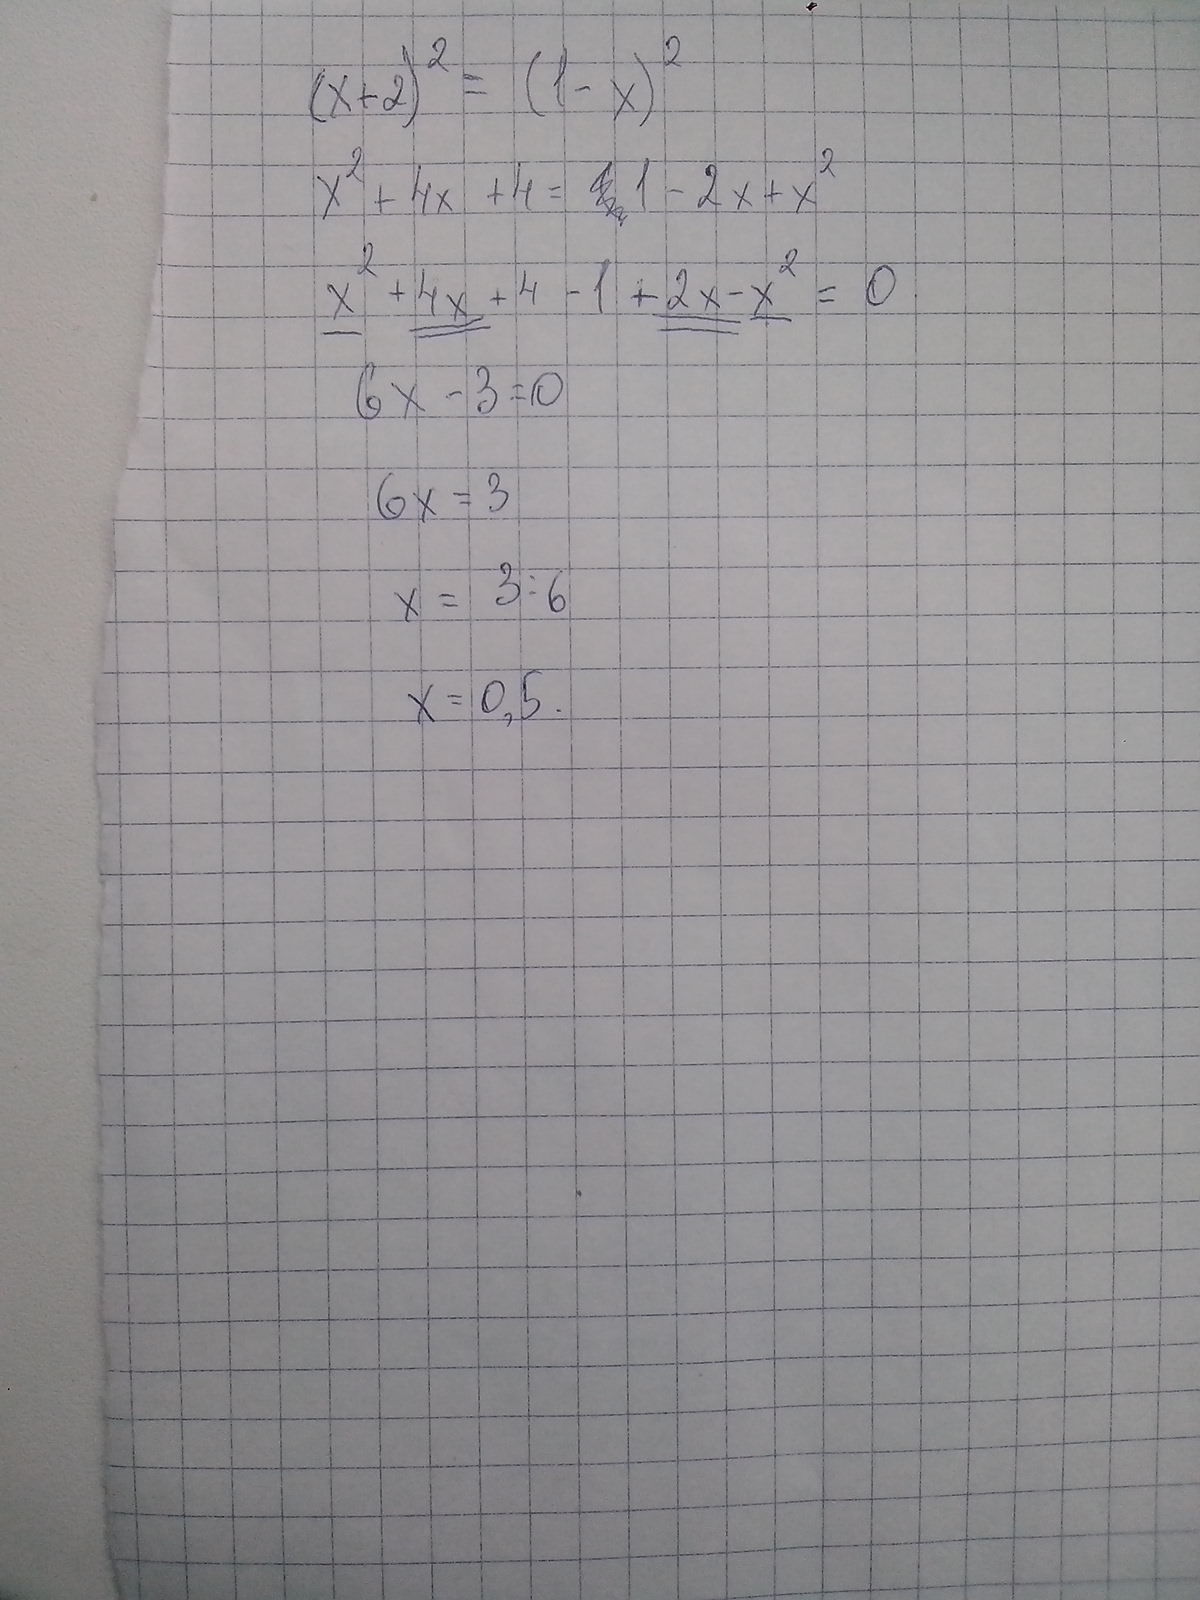 (x+2)² = (1-x)²
x² + 4x + 4 = 1 - 2x + x²
x² + 4x + 4 - 1 + 2x - x² = 0
6x - 3 = 0
6x = 3
x = 3:6
x = 0,5.